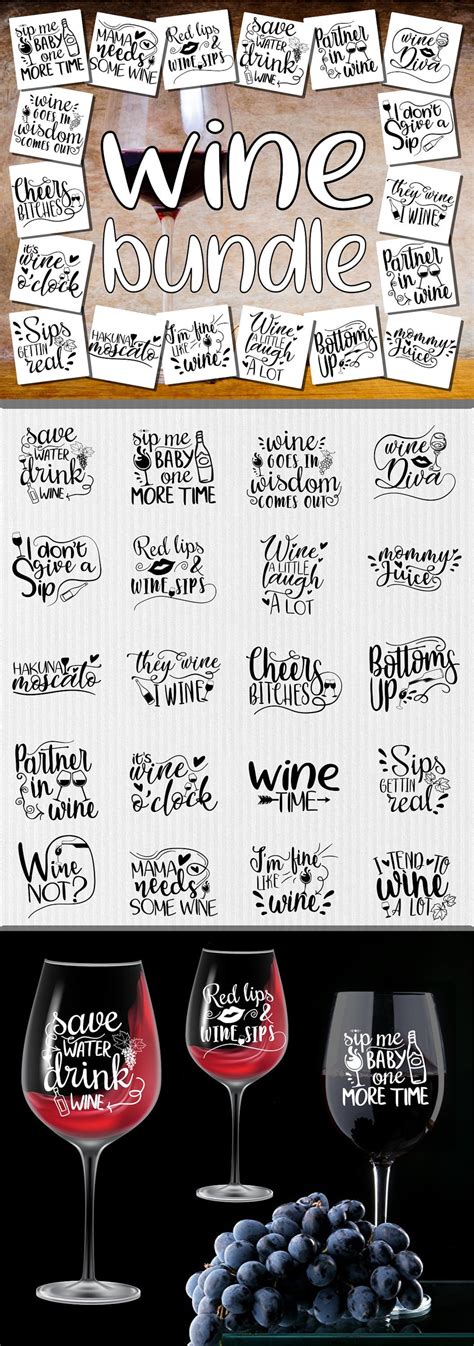 sip me
BABY
one
MORE TIME
MAMA
needs
SOME WINE
Red lips
&
WINE SIPS
save
WATER
drink
WINE
Partner
in
wine
wine
Diva
wine
GOES IN
wisdom
COMES OUT
I don't
give a
Sip
Cheers
BITCHES
they wine
I WINE
it's
wine
o'clock
Partner
in
wine
wine
bundle
Sips
GETTIN
real
HAKUNA
moscato
I'm fine
LIKE
wine
Wine
A LITTLE
laugh
A LOT
Bottoms
UP
mommy
Juice
save
WATER
drink
WINE
sip me
BABY
one
MORE TIME
wine
GOES IN
wisdom
COMES OUT
wine
Diva
I don't
give a
Sip
Red lips
&
WINE SIPS
Wine
A LITTLE
laugh
A LOT
mommy
Juice
HAKUNA
moscato
they wine
I WINE
Cheers
BITCHES
Bottoms
UP
Partner
in
wine
it's
wine
o'clock
wine
TIME
Sips
GETTIN
real
Wine
NOT?
MAMA
needs
SOME WINE
I'm fine
LIKE
wine
I TEND TO
wine
A LOT
save
WATER
drink
WINE
Red lips
&
WINE SIPS
sip me
BABY
one
MORE TIME